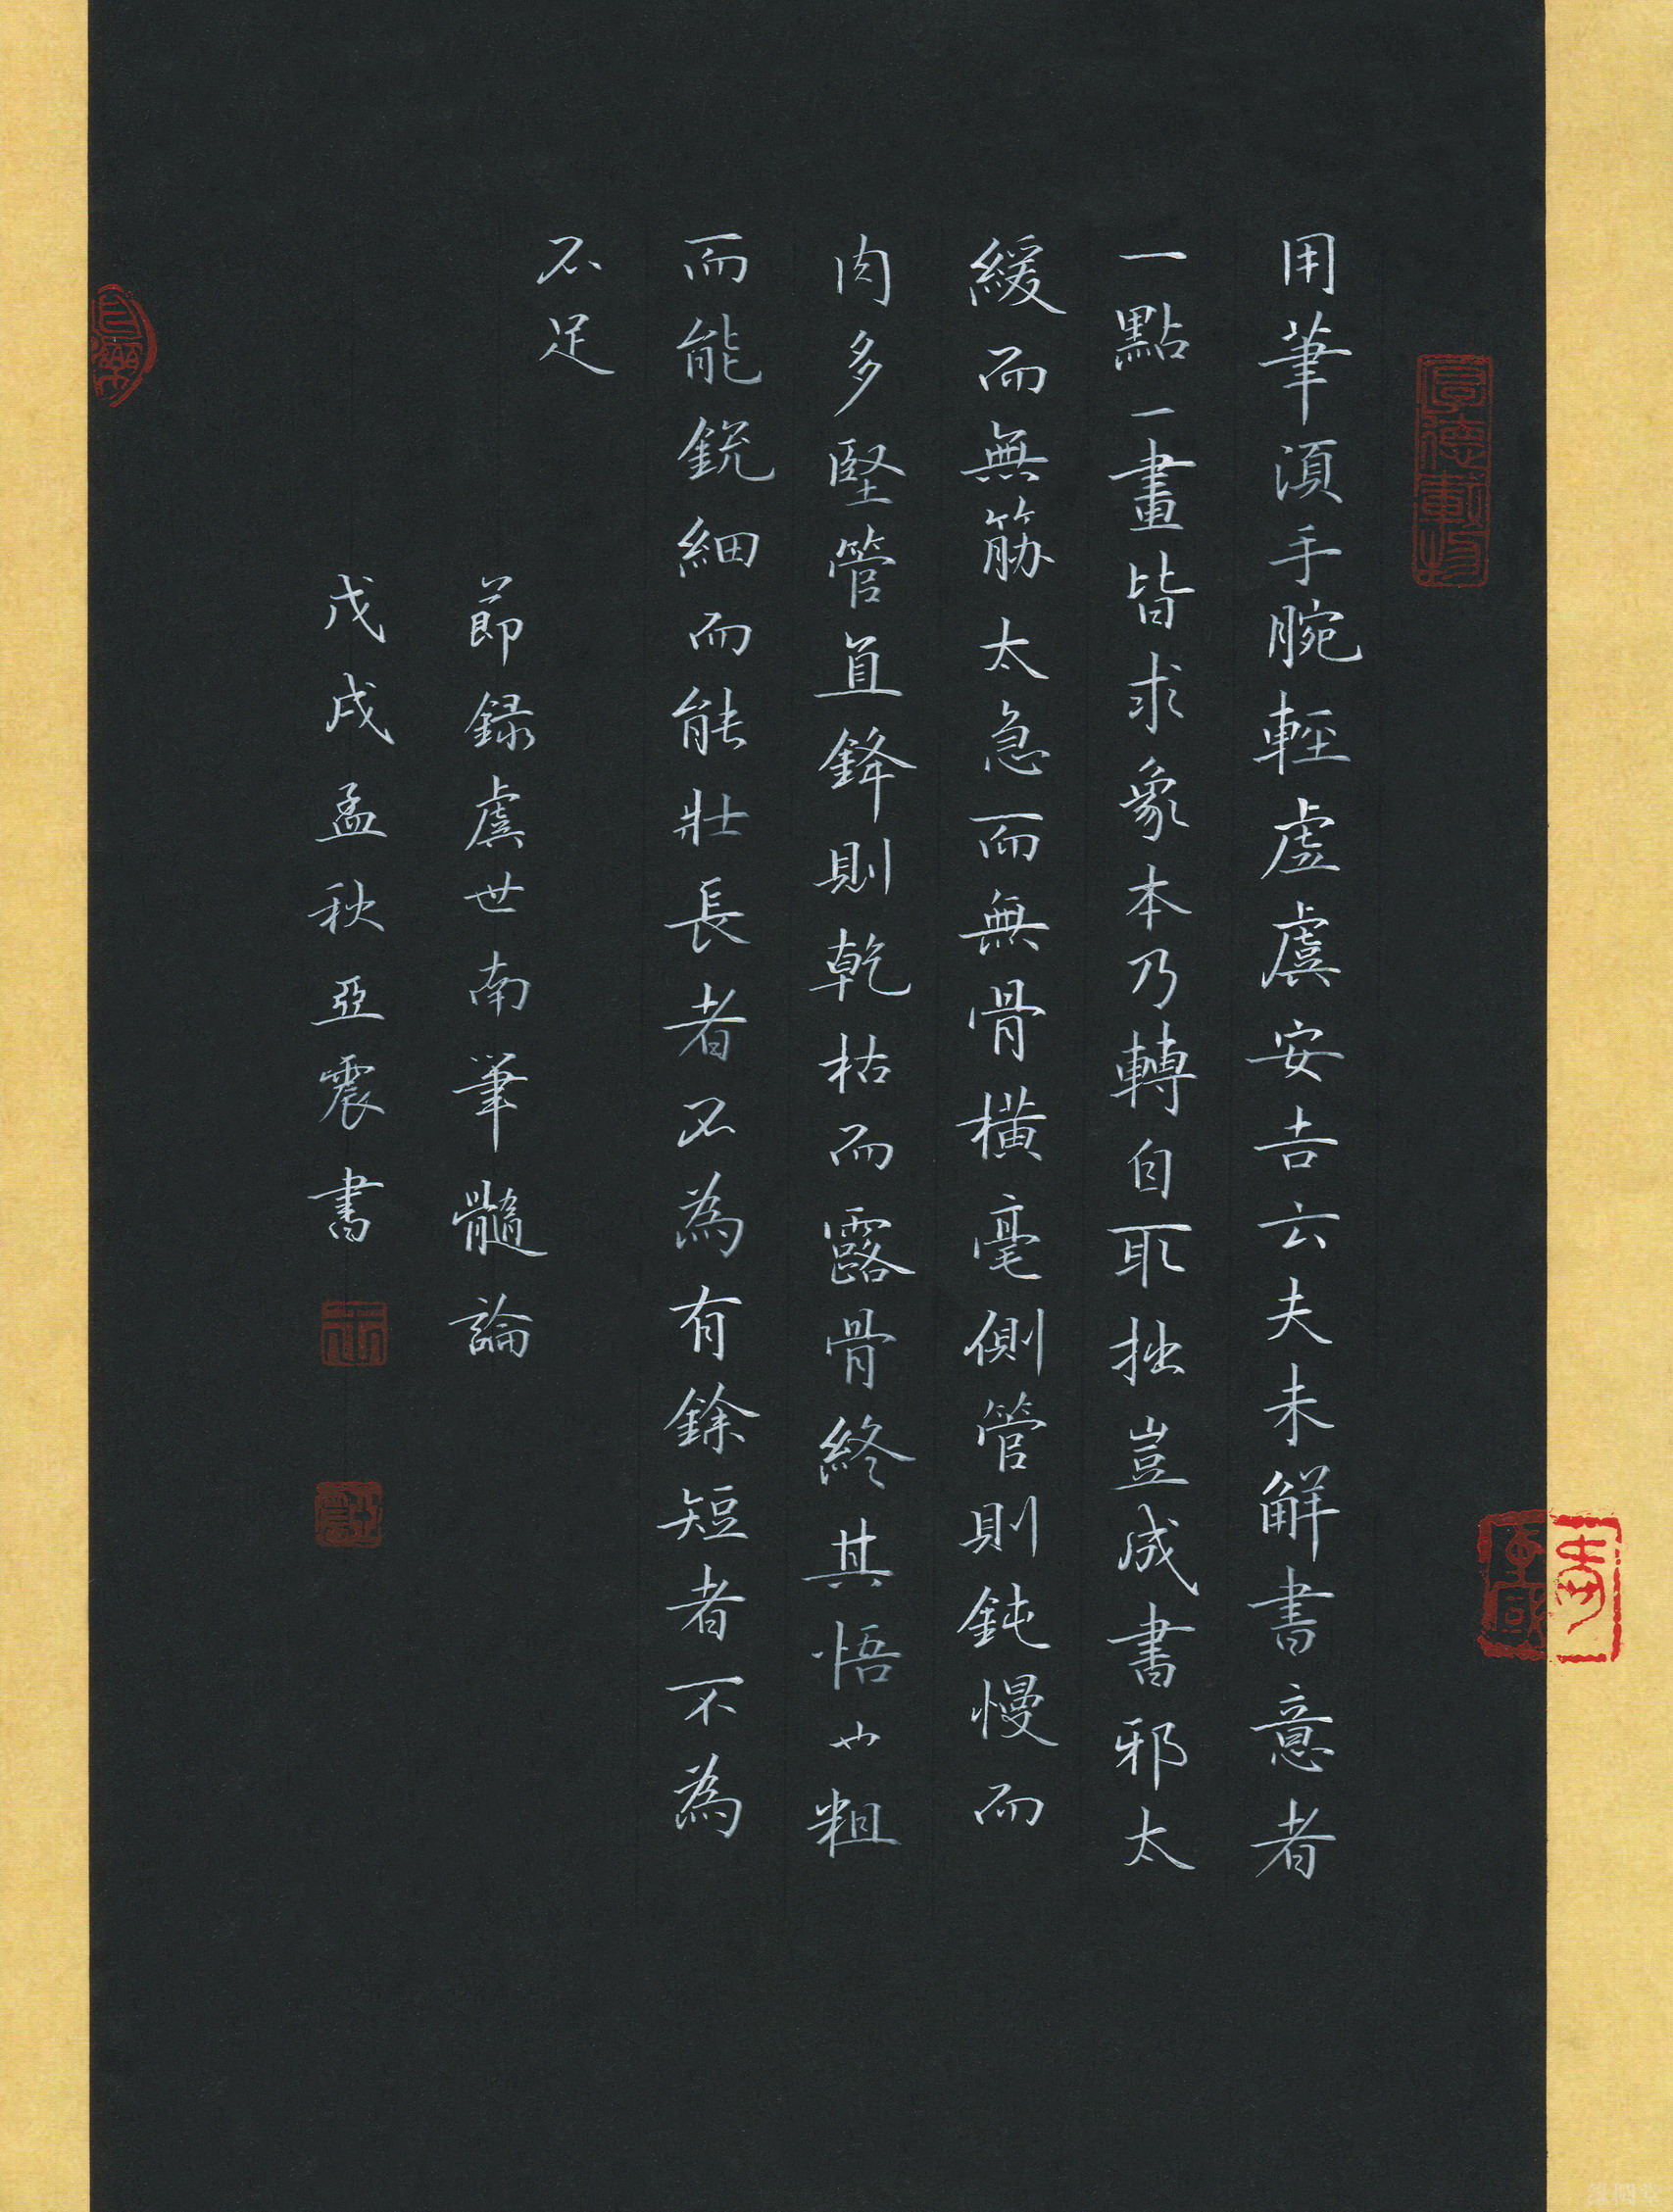 用筆須手腕輕虛虞安吉云夫未解書意者
一點一畫皆求象本乃轉自取拙豈成書邪太
緩而無筋太急而無骨橫毫側管則鈍慢而
肉多竪管直鋒則乾枯而露骨終其悟也粗
而能銳細而能壯長者不為有餘短者不為
不足
節録虞世南筆髓論
戊戌孟秋亞震書
厚德載物